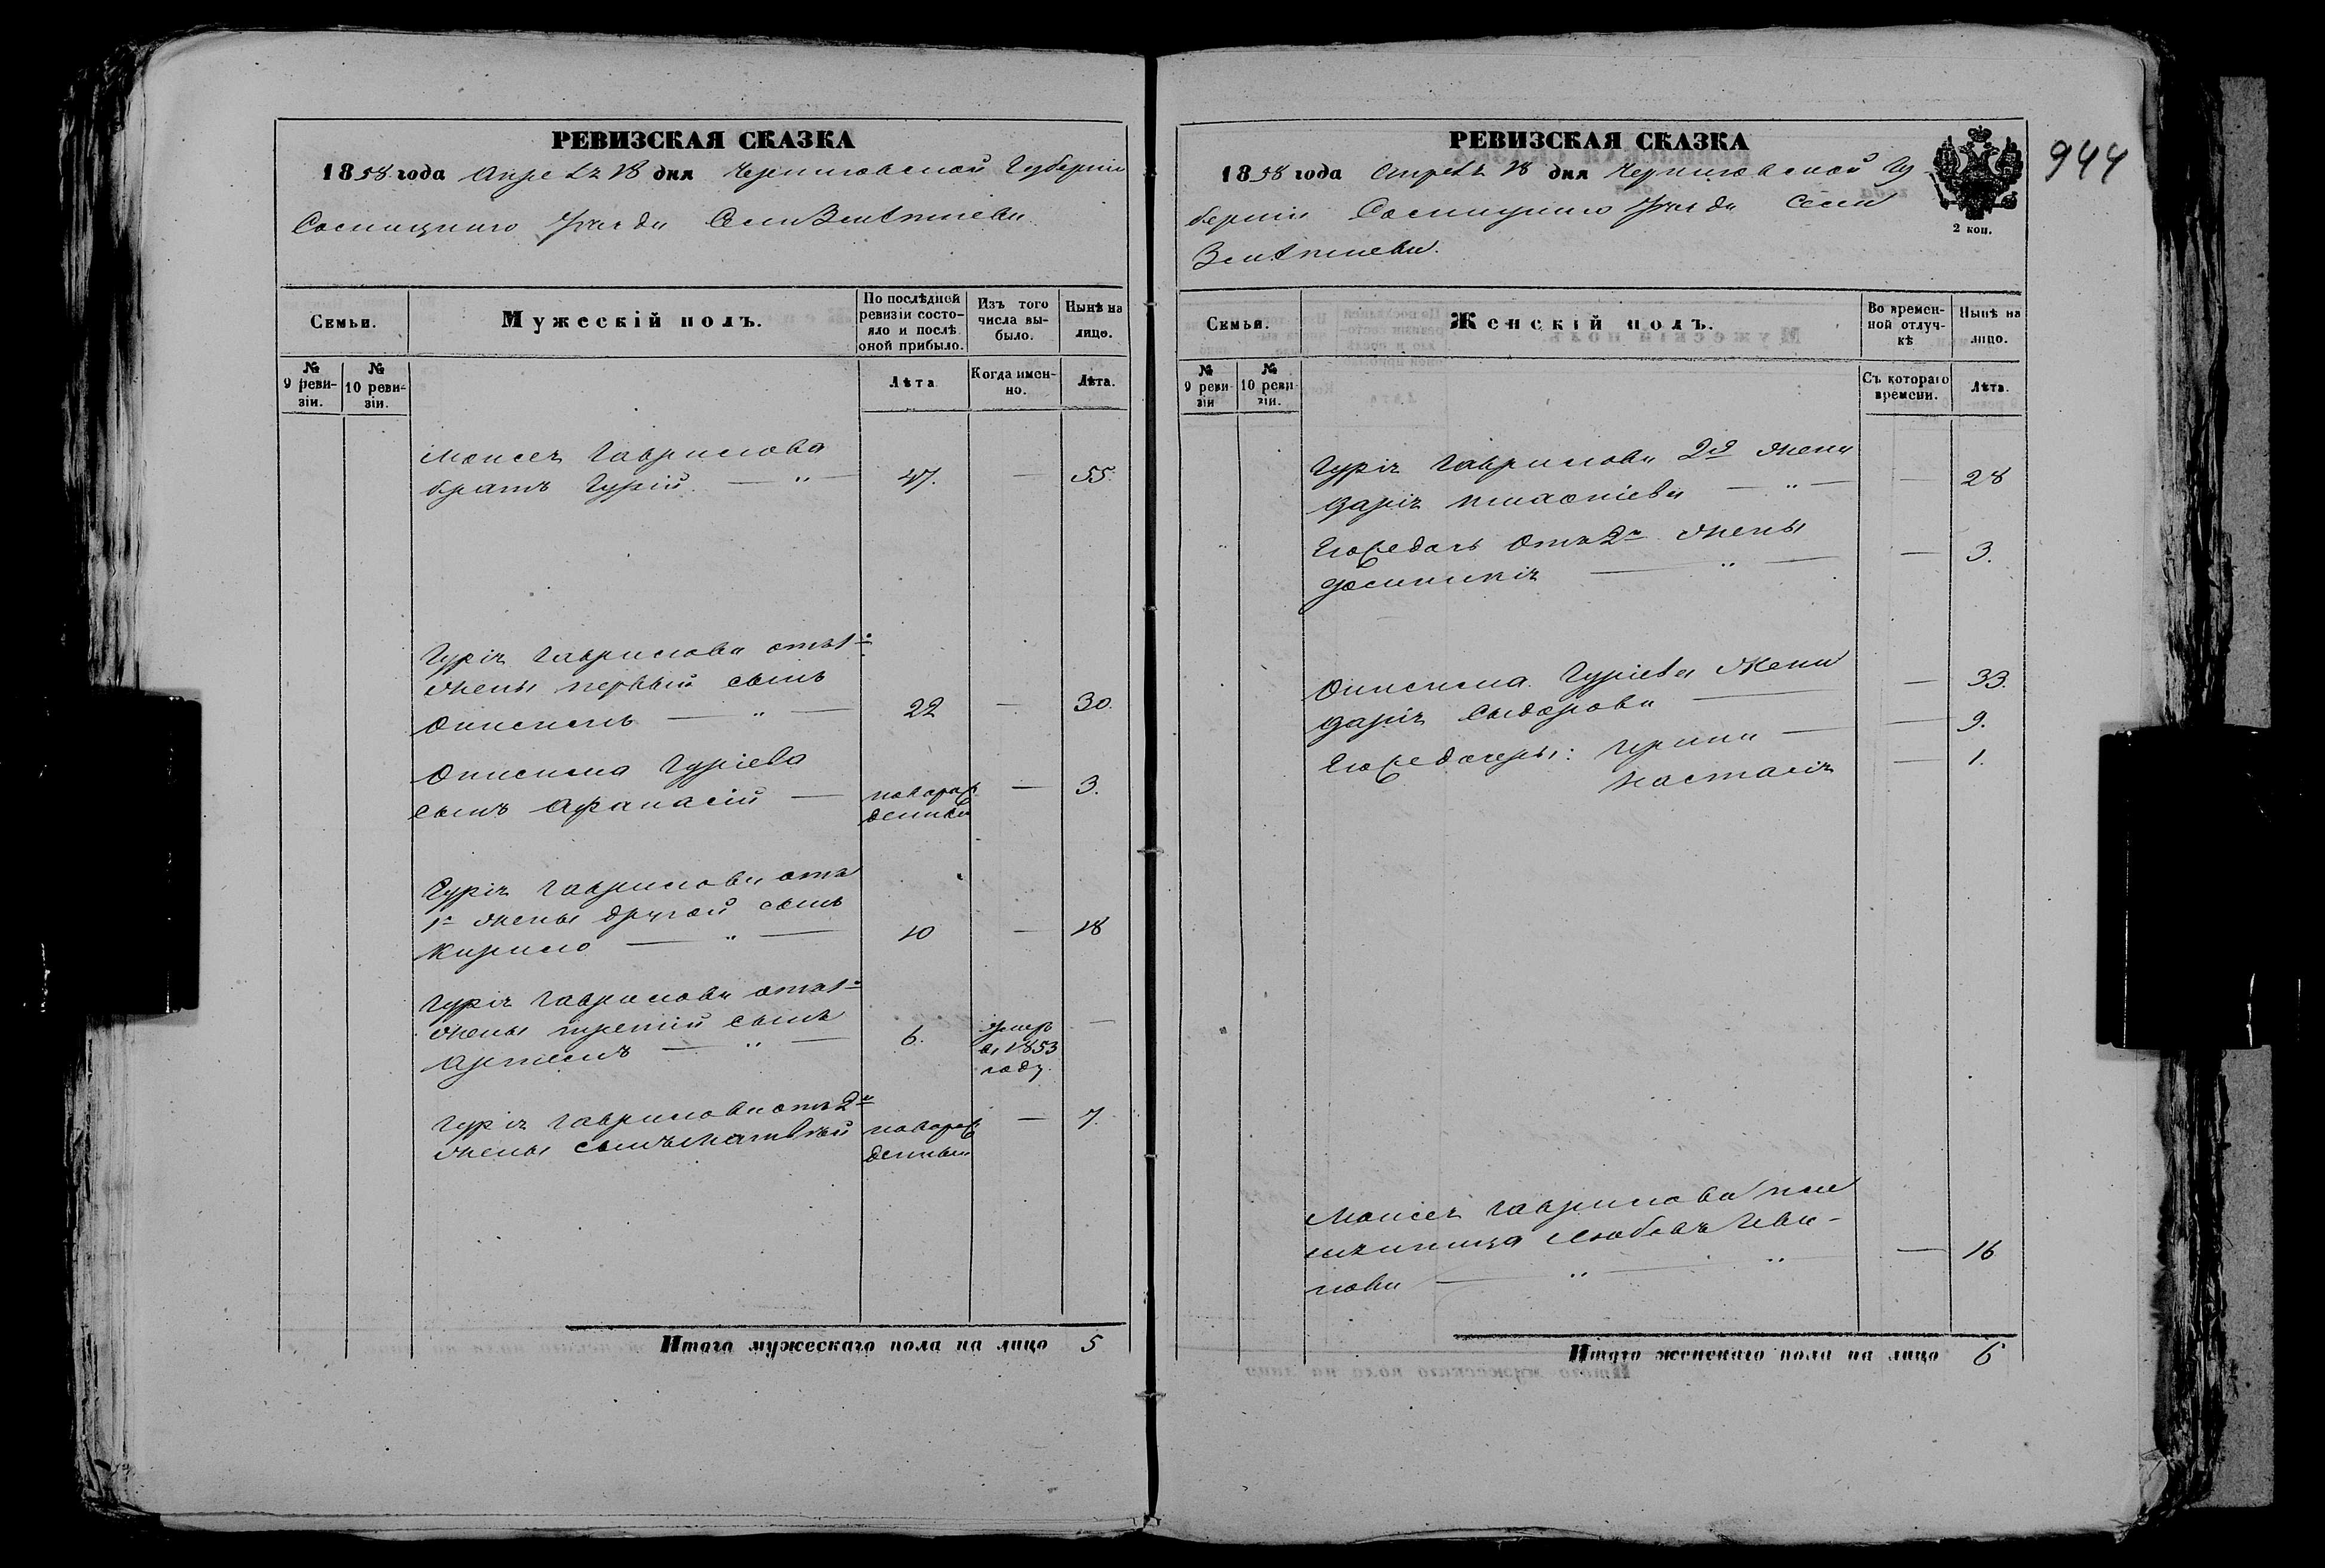 РЕВИЗСКАЯ СКАЗКА
1858 года Апреля 18 дня Черниговской Губерніи
Сосницкаго Уезда Села
Семьи.
Мужескій полъ.
По послѣдней ревизіи состо-
яло и послѣ
оной прибыло.
Изъ того
числа вы-
было.
Нынѣ на
лицо.
№
9 реви-
зіи.
№
10 реви-
зіи.
Лѣта
Когда имен-
но.
Лѣта.
Моисея Гаврилова
братъ Гурій — " — 47. — 55.
Гурія Гаврилова отъ 1й
жены первый сынъ
Онисимъ — " — 22 — 30.
Онисима Гуріева
сынъ Афанасій — новорож
денный — 3.
Гурія Гаврилова отъ
1й жены другой сынъ
Кирило — " — 10 — 18
Гурія Гаврилова отъ 1й
жены третій сынъ
Артемъ — " — 6. умеръ
въ 1853
году. —
Гурія Гаврилова отъ 2й
жены сынъ Матвѣй новорож
денный — 7.
Итого мужескаго пола на лицо 5
РЕВИЗСКАЯ СКАЗКА
2 коп.
944
1858 года Апреля 18 дня Черниговской Гу
берніи Сосницкаго Уезда Села
Семьи.
Женскій полъ.
Во времен-
ной отлуч-
кѣ
Нынѣ на
лицо.
№
9 реви
зіи
№
10 реви
зіи.
Съ котораго
времени.
Лѣта.
Гурія Гаврилова 2я жена
Дарія — " — — 28
Его же дочь отъ 2й жены
— " — — 3.
Онисима Гуріева жена
Дарія Сидорова — — 33.
Его же дочеры: Ирина — — 9.
Настасія — 1.
Моисея Гаврилова пле
мянница Любовь Ива-
нова — " — " — 16
Итого женскаго пола на лицо 6